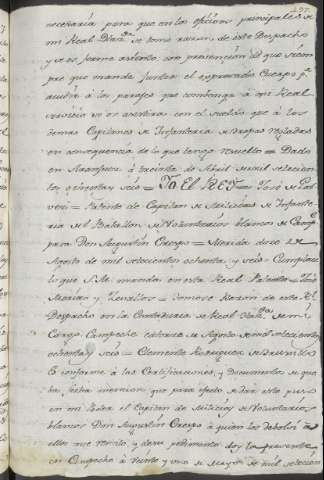 necesaria para que en los oficios principales de
mi Real Haz.da se tome razon de este Despacho
y os forme asiento, con prevencion de que siem-
pre que mande juntar el expresado Cuerpo p.a
acudir á los parages que combenga á mi Real
servicio os asistira con el sueldo que á los
demas Capitanes de Infanteria de tropas regladas
en consequencia de lo que tengo resuelto = Dado
en Aranjuez á treinta de Abril de mil setecien-
tos ochenta y seis = Yo El Rey = José de Gal-
vez = Patente de Capitan de Milicias de Infante-
ria del Batallon de Voluntarios blancos de Camp.e
para Don Augustin Crespo = Merida doce de
Agosto de mil setecientos ochenta y seis = Cumplase
lo que S. M. manda en esta Real Patente = José
Merino y Zevallos = Tomose Razon de este R.l
Despacho en la Contaduria de Real Haz.da de mi
Cargo. Campeche catorce de Agosto de mil setecientos
ochenta y seis = Clemente Rodriguez de
Es conforme á las Certificaciones, y Documentos de que
ha fecha mencion que para efecto de dár este puso
en mi Poder el Capitan de Milicias de Voluntarios
blancos Don Augustin Crespo á quien los debolví á
ellos me remito, y de su pedimento doy la presente
en Campeche á veinte y uno de Mayo de mil setecien